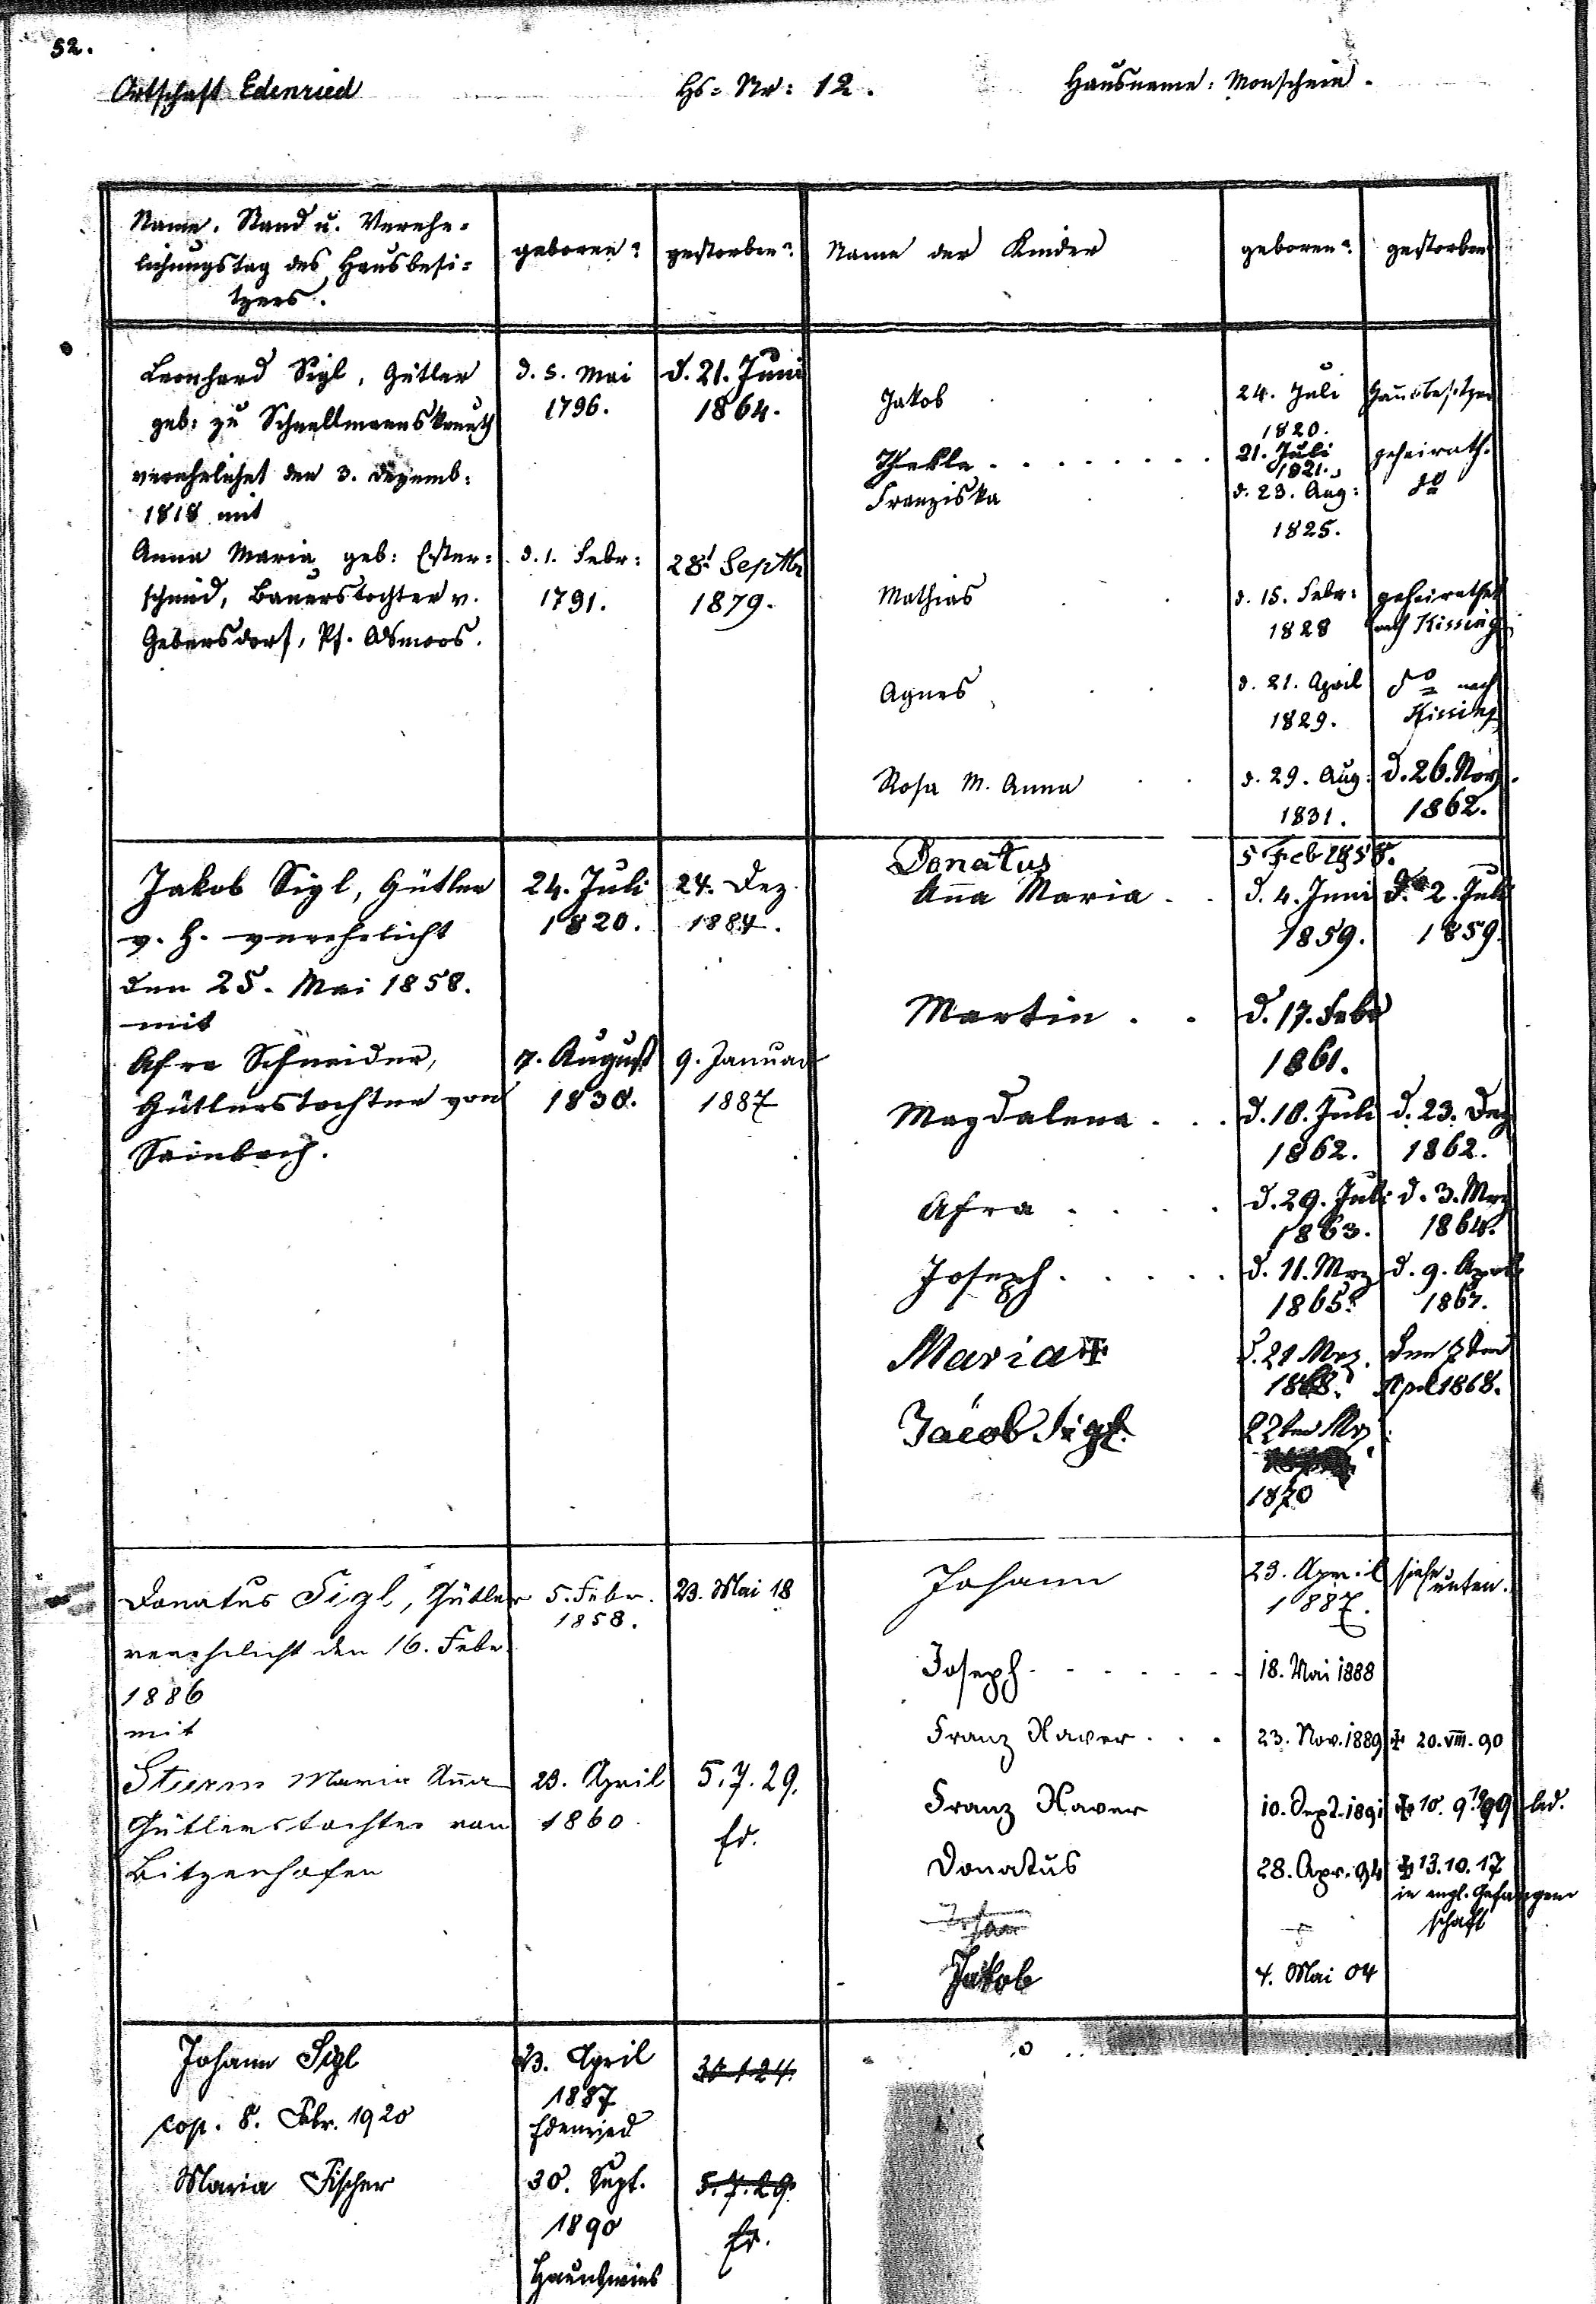 52.
Ortschaft Edenried Hs= Nr: 12. Hausname: Monschein.
Name. Stand u. Verehe=
lichungstag des Hausbesi=
tzers.
geboren? gestorben? Name der Kinder geboren? gestorben
Leonhard Sigl, Gütler
geb: zu Schnellmannskreuth
verehelichet den 3. Dezemb:
1818 mit
d. 5. Mai
1796.
d. 21. Juni
1864.
Anna Maria geb: Ester=
schmid, Bauerstochter v.
Gebersdorf, Pf.
d. 1. Febr:
1791.
28t Septbr
1879.
Jakob 24. Juli
1820.
Hausbesitzer
Thekla 21. Juli
1821.
geheirath.
Franziska d. 23. Aug:
1825.
do
Mathias d. 15. Febr:
1828
geheirathet
nach Kissing
Agnes d. 21. April
1829.
do nach
Kissing
Rosa M. Anna d. 29. Aug:
1831.
d. 26. Nov.
1862.
Jakob Sigl, Gütler
v. h. verehelicht
den 25. Mai 1858.
mit
24. Juli
1820.
24. Dez.
1884.
Afra Schneider,
Gütlerstochter von
Sainbach.
7. August
1830.
9. Januar
1887
Donatus 5 Feb 1858.
Anna Maria d. 4. Juni
1859.
d. 2. Juli
1859.
Martin d. 17. Febr
1861.
Magdalena d. 10. Juli
1862.
d. 23. Dez
1862.
Afra d. 29. Juli
1863.
d. 3. Mrz
1864.
Joseph d. 11. Mrz
1865.
d. 9. April
1867.
Maria d. 21 Mrz.
1868.
den 7ten
April 1868.
Jacob Sigl. 22ten Mrz
1870
Donatus Sigl, Gütler
verehelicht den 16. Febr.
1886
mit
5. Febr.
1858.
23. Mai 18
Sturm Maria Anna
Gütlerstochter von
Bitzenhofen
23. April
1860.
5.7.29.
Ed.
Johann 23. April
1887.
siehe
unten.
Joseph 18. Mai 1888
Franz Xaver 23. Nov. 1889 + 20.VIII.90
Franz Xaver 10. Sept. 1891 led.
Donatus 28. Apr. 94 + 13.10.17
in engl. Gefangen
schaft
Johann
Jakob 4. Mai 04
Johann Sigl
cop. 8. Febr. 1920
23. April
1887
Edenried
30.1.24.
Maria Fischer 30. Sept.
1890
Haunswies
5.7.29.
Ed.